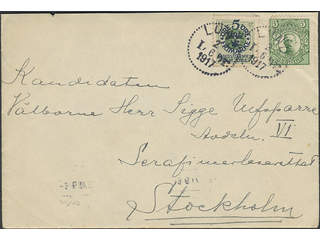 5
5
LU
2
1917
1917
Kandidaten
Välborne Herr Sigge Ulfsparre
Avdeln. VI
Serafimerlasarettet
Stockholm